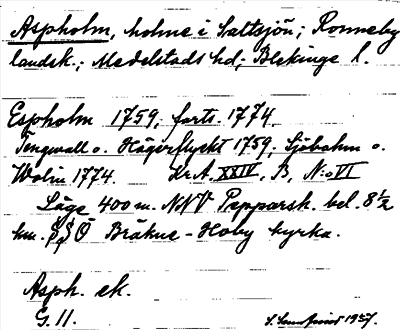 Aspholm, holme i Saltsjön; Ronneby
landsk.; Medelstads hd; Blekinge l.
Espholm 1759, forts. 1774
Tengwall o. Hägerflyckt 1759; Sjöbohm o.
Wolin 1774. Kr.A. XXIV, B, N:o VI
Läge 400 m. NNV Pepparsk. bel. 8 1/2
km. SSÖ Bräkne-Hoby kyrka.
Asph. ek.
G. 11.
1937.